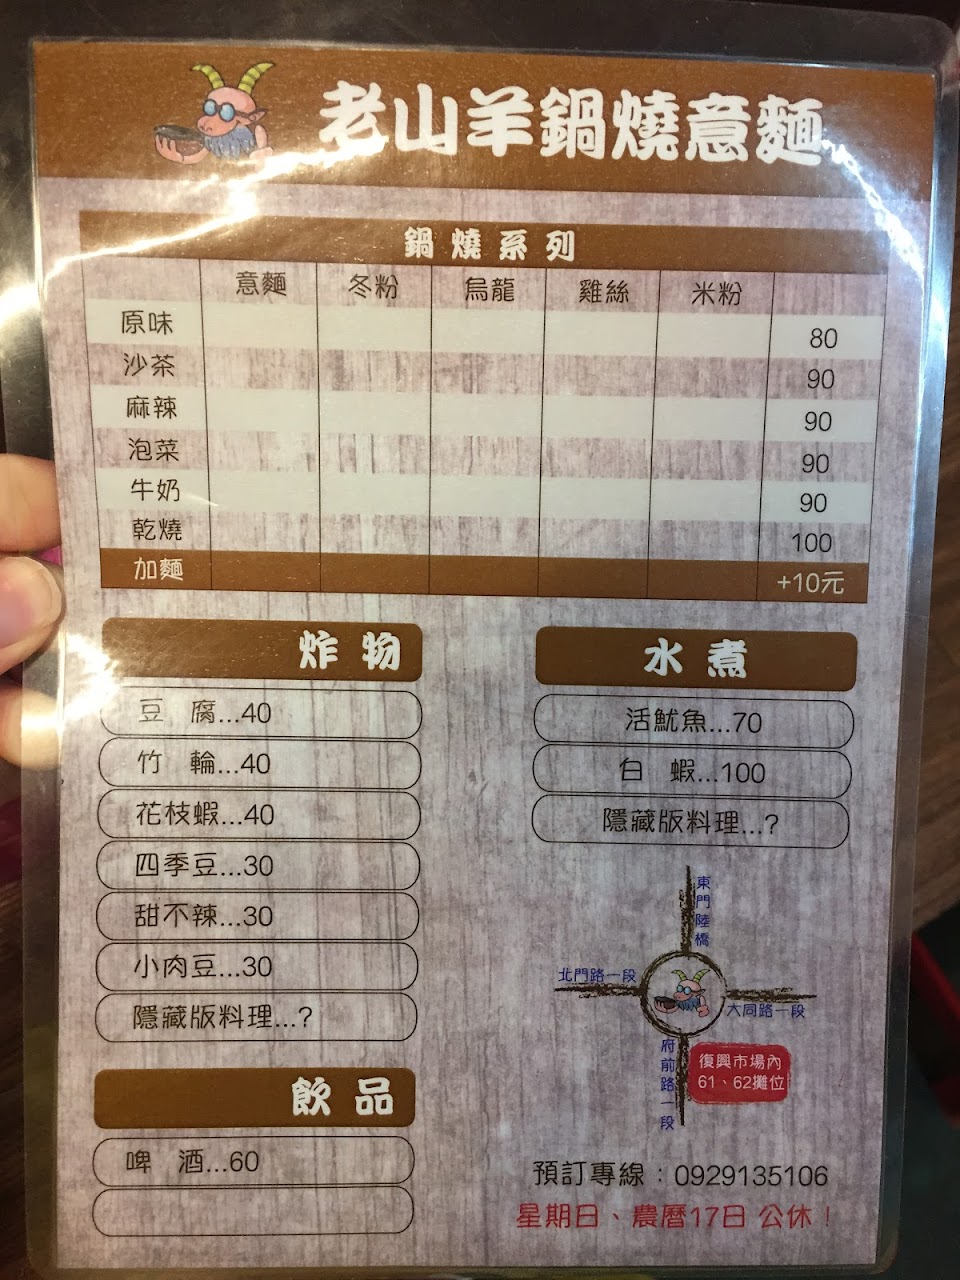 老山羊鍋燒意麵
鍋燒系列
意麵 冬粉 烏龍 雞絲 米粉
原味 80
沙茶 90
麻辣 90
泡菜 90
牛奶 90
乾燒 100
加麵 +10元
炸物
豆腐...40
竹輪...40
花枝蝦...40
四季豆...30
甜不辣...30
小肉豆...30
隱藏版料理...?
飲品
啤酒...60
水煮
活魷魚...70
白蝦...100
隱藏版料理...?
東門陸橋
北門路一段
大同路一段
府前路一段
復興市場內
61、62攤位
預訂專線：0929135106
星期日、農曆17日 公休！